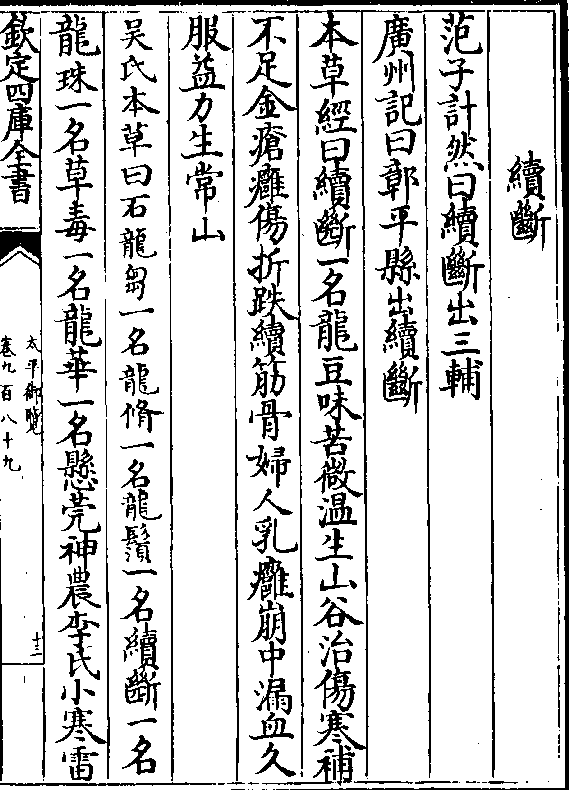 續斷
范子計然曰續斷出三輔
廣州記曰鄣平縣出續斷
本草經曰續斷一名龍豆味苦微温生山谷治傷寒補
不足金瘡癰傷折跌續筋骨婦人乳癰崩中漏血久
服益力生常山
吴氏本草曰石龍芻一名龍脩一名龍鬚一名續斷一名
龍珠一名草毒一名龍華一名懸莞神農李氏小寒雷
欽定四庫全書
太平御覽
卷九百八十九
十三